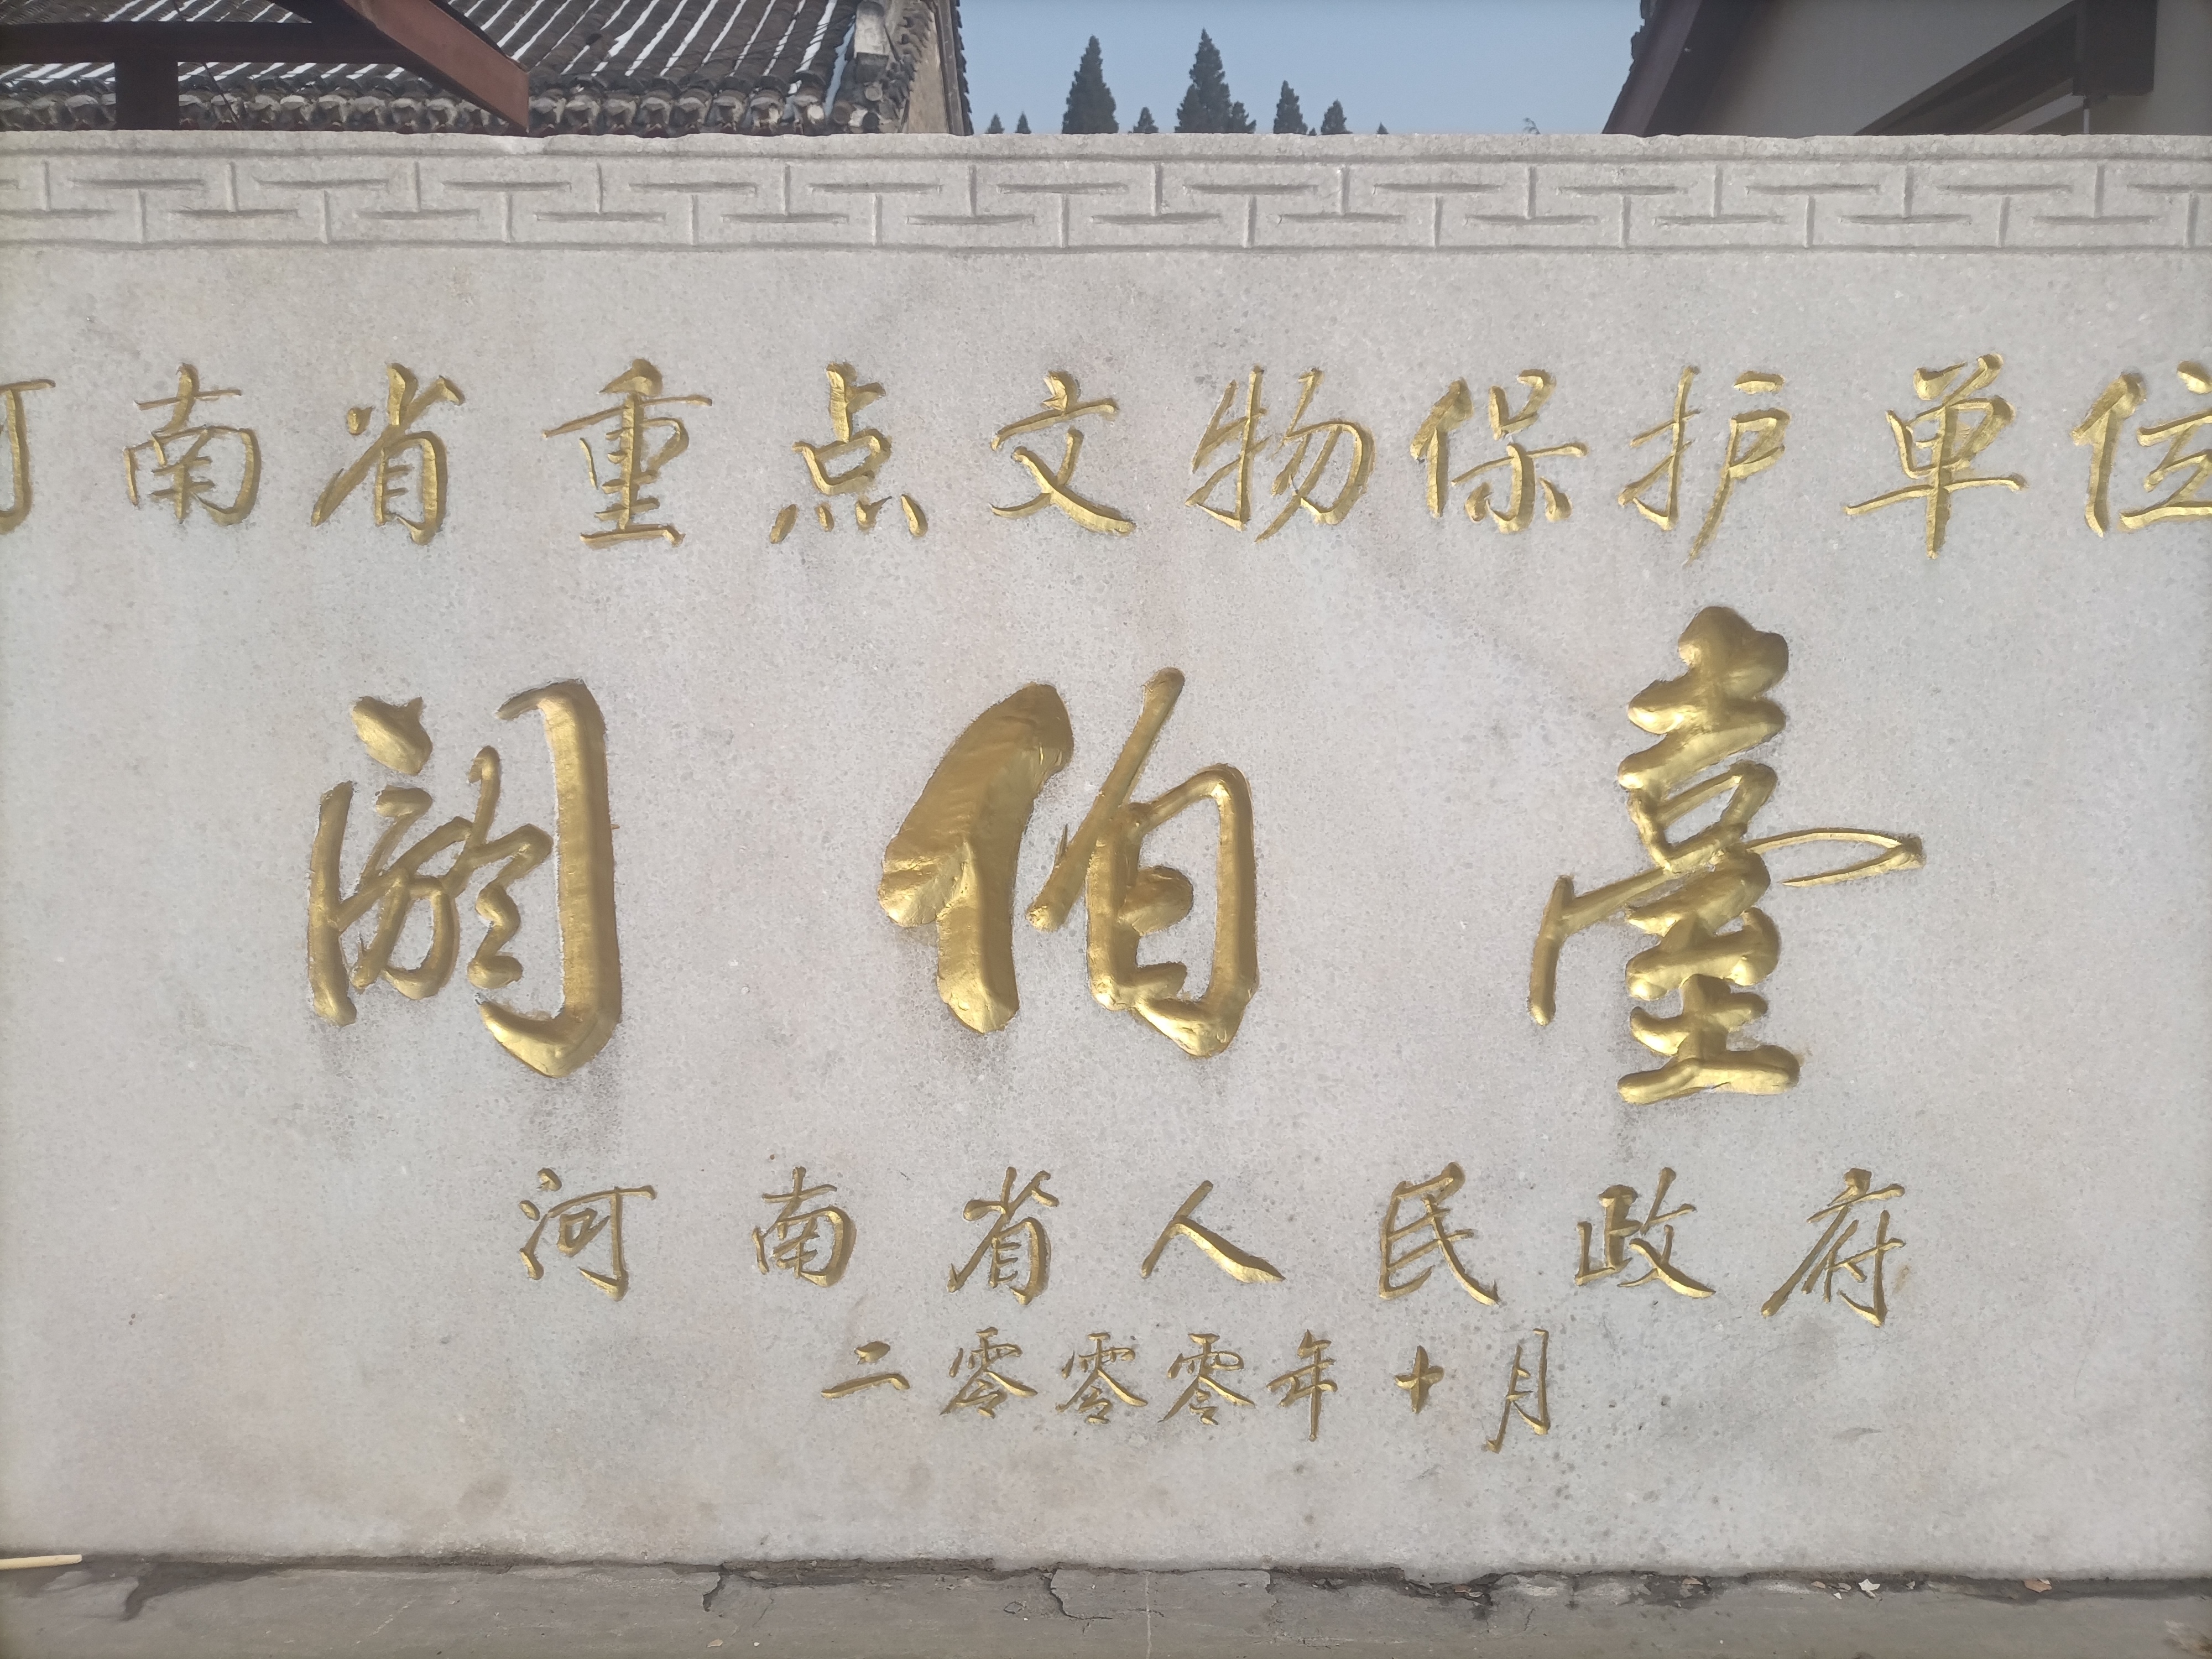 河南省重点文物保护单位
阏伯臺
河南省人民政府
二零零零年十月